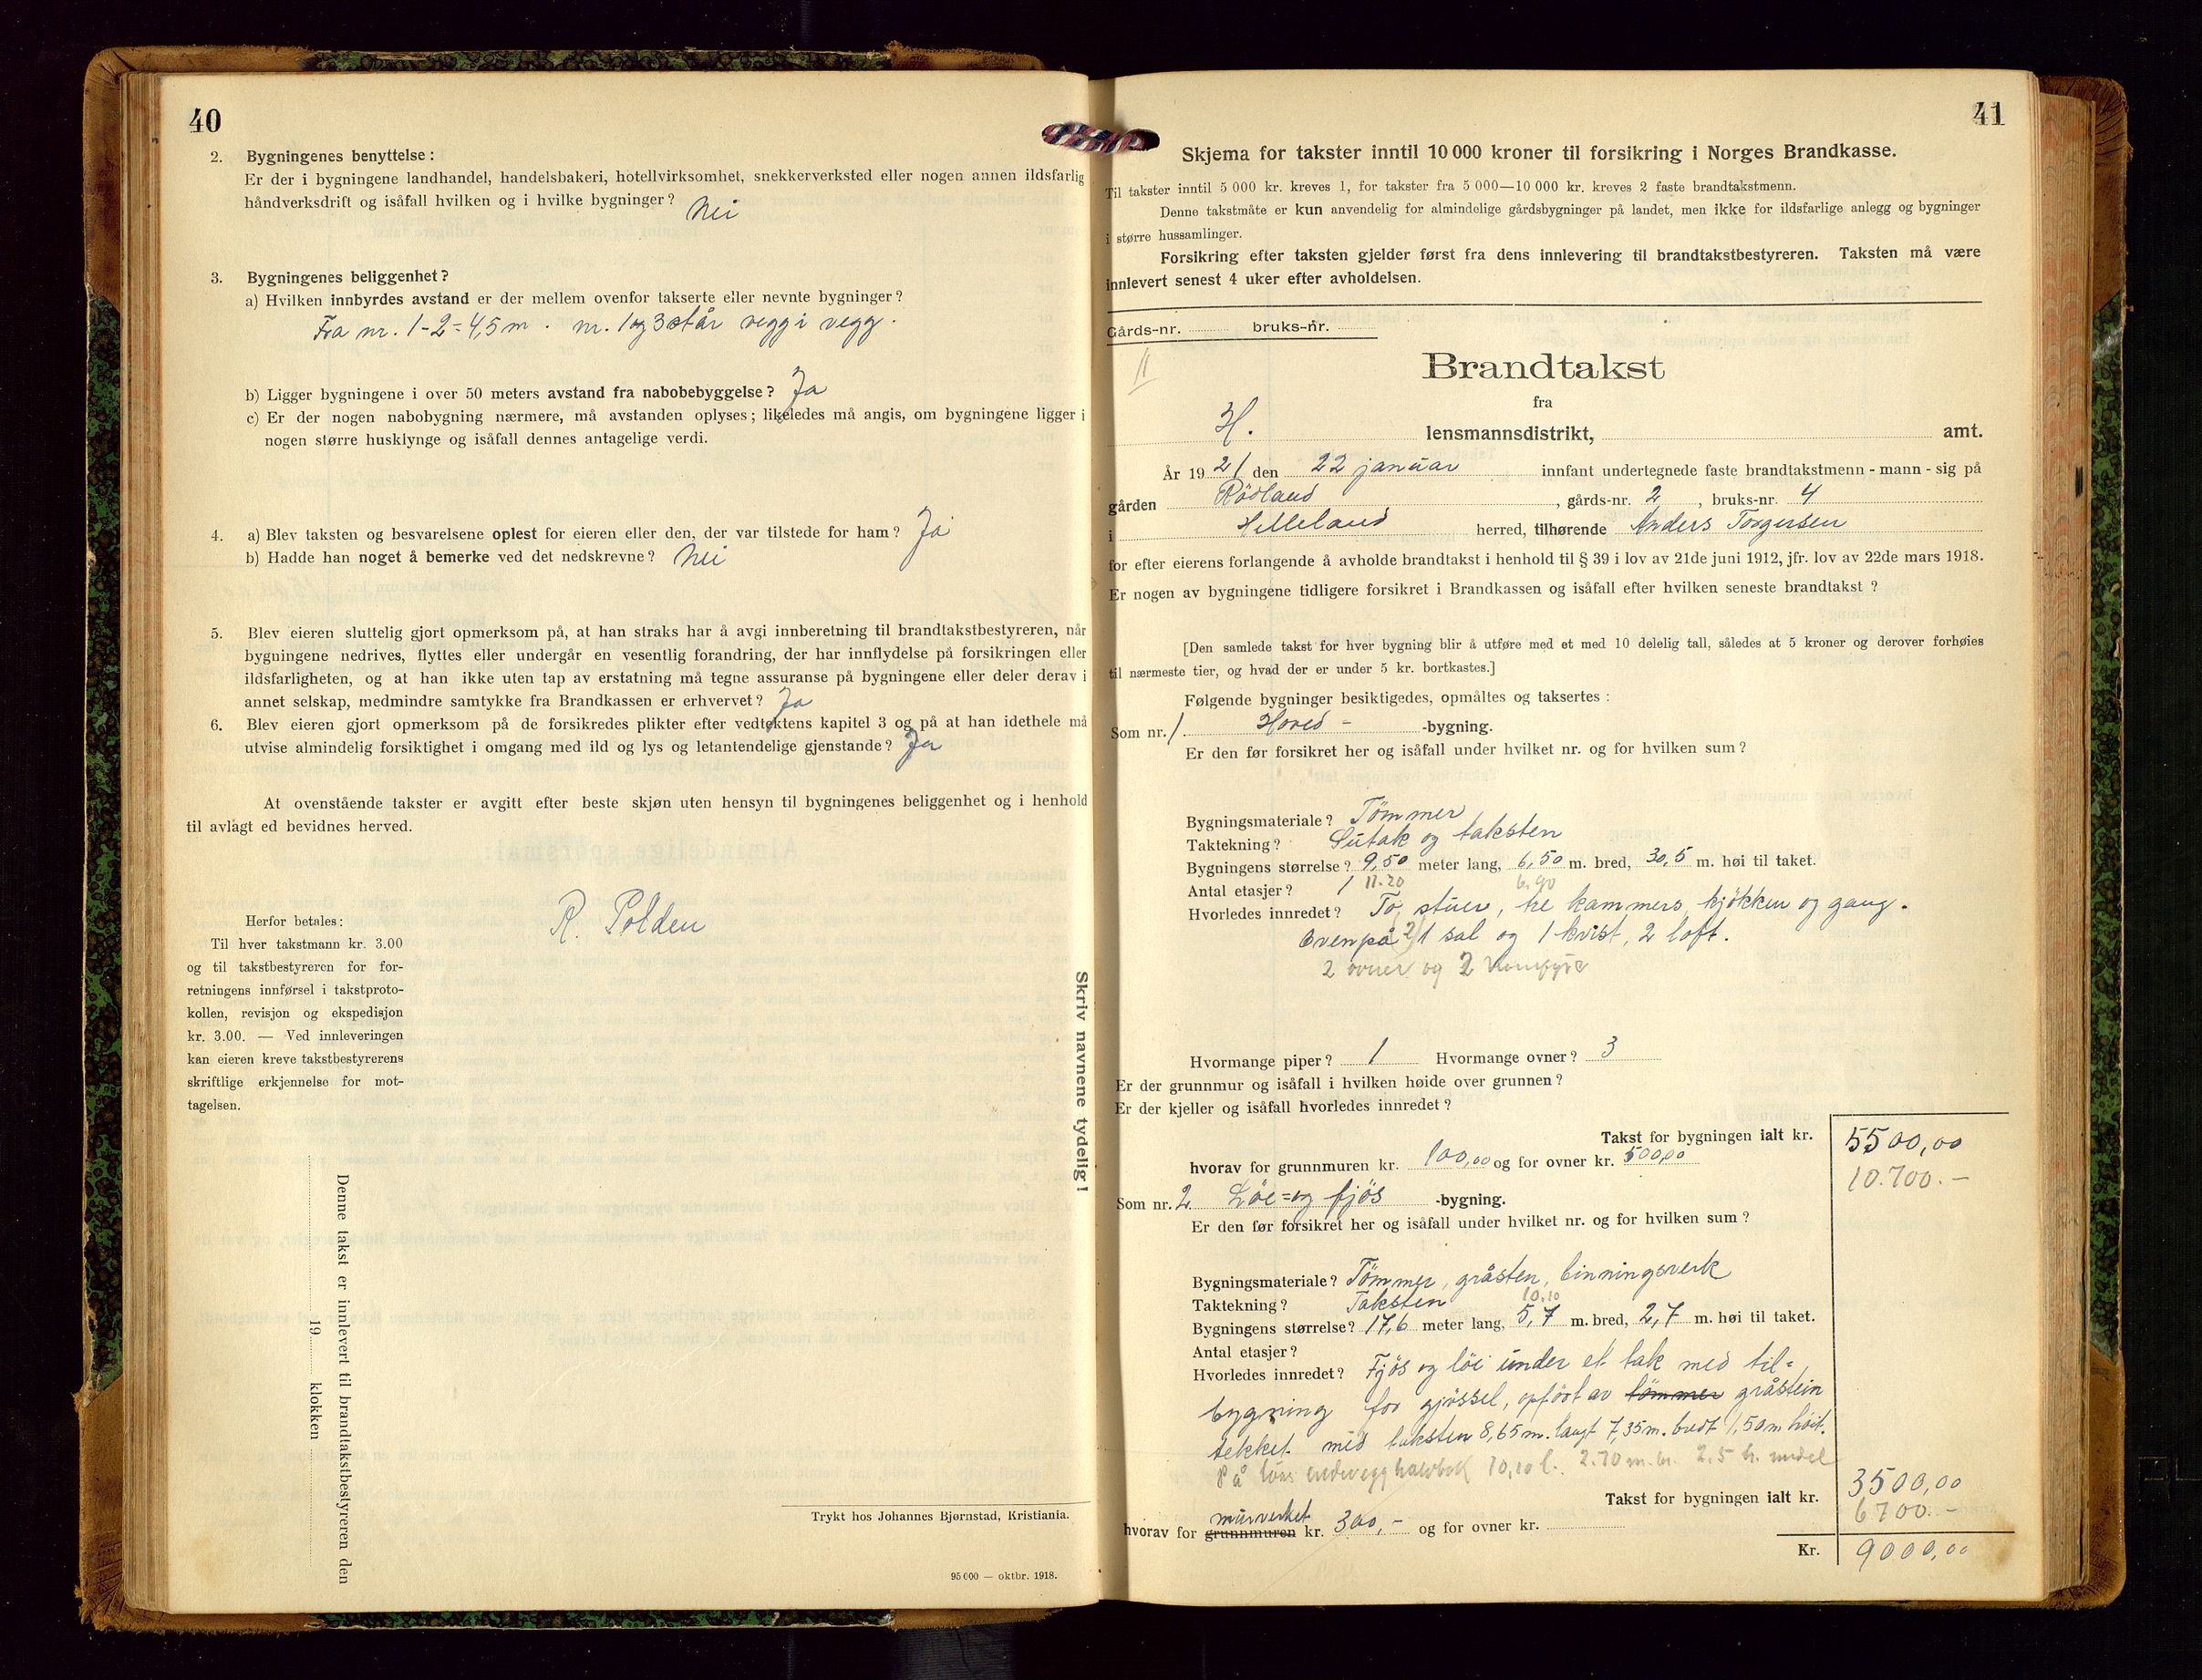 40
2. Bygningenes benyttelse:
Er der i bygningene landhandel, handelsbakeri, hotellvirksomhet, snekkerverksted eller nogen annen ildsfarlig
håndverksdrift og isåfall hvilken og i hvilke bygninger? Nei
3. Bygningenes beliggenhet?
a) Hvilken innbyrdes avstand er der mellem ovenfor takserte eller nevnte bygninger?
Fra nr. 1-2=4,5m. nr. 1 og 3 står vegg i vegg.
b) Ligger bygningene i over 50 meters avstand fra nabobebyggelse? Ja
c) Er der nogen nabobygning nærmere, må avstanden oplyses; likeledes må angis, om bygningene ligger i
nogen større husklynge og isåfall dennes antagelige verdi.
4. a) Blev taksten og besvarelsene oplest for eieren eller den, der var tilstede for ham? Ja
b) Hadde han noget å bemerke ved det nedskrevne? Nei
5. Blev eieren sluttelig gjort opmerksom på, at han straks har å avgi innberetning til brandtakstbestyreren, når
bygningene nedrives, flyttes eller undergår en vesentlig forandring, der har innflydelse på forsikringen eller
ildsfarligheten, og at han ikke uten tap av erstatning må tegne assuranse på bygningene eller deler derav i
annet selskap, medmindre samtykke fra Brandkassen er erhvervet? Ja
6. Blev eieren gjort opmerksom på de forsikredes plikter efter vedtektens kapitel 3 og på at han idethele må
utvise almindelig forsiktighet i omgang med ild og lys og letantendelige gjenstande? Ja
At ovenstående takster er avgitt efter beste skjøn uten hensyn til bygningenes beliggenhet og i henhold
til avlagt ed bevidnes herved.
R. Polden
Herfor betales:
Til hver takstmann kr. 3.00
og til takstbestyreren for for-
retningens innførsel i takstproto-
kollen, revisjon og ekspedisjon
kr. 3.00. — Ved innleveringen
kan eieren kreve takstbestyrerens
skriftlige erkjennelse for mot-
tagelsen.
Denne takst er innlevert til brandtakstbestyreren den
19 klokken
Skriv navnene tydelig!
Trykt hos Johannes Bjørnstad, Kristiania.
95 000 — oktbr. 1918.
41
Skjema for takster inntil 10 000 kroner til forsikring i Norges Brandkasse.
Til takster inntil 5 000 kr. kreves 1, for takster fra 5 000—10 000 kr. kreves 2 faste brandtakstmenn.
Denne takstmåte er kun anvendelig for almindelige gårdsbygninger på landet, men ikke for ildsfarlige anlegg og bygninger
i større hussamlinger.
Forsikring efter taksten gjelder først fra dens innlevering til brandtakstbestyreren. Taksten må være
innlevert senest 4 uker efter avholdelsen.
Gårds-nr. bruks-nr.
11
Brandtakst
fra
H. lensmannsdistrikt, amt.
År 1921 den 22 januar innfant undertegnede faste brandtakstmenn - mann - sig på
gården Rödland, gårds-nr. 2, bruks-nr. 4
i Helleland herred, tilhørende Anders Torgersen
for efter eierens forlangende å avholde brandtakst i henhold til § 39 i lov av 21de juni 1912, jfr. lov av 22de mars 1918.
Er nogen av bygningene tidligere forsikret i Brandkassen og isåfall efter hvilken seneste brandtakst?
[Den samlede takst for hver bygning blir å utføre med et med 10 delelig tall, således at 5 kroner og derover forhøies
til nærmeste tier, og hvad der er under 5 kr. bortkastes.]
Følgende bygninger besiktigedes, opmåltes og taksertes:
Som nr. 1 Hoved- -bygning.
Er den før forsikret her og isåfall under hvilket nr. og for hvilken sum?
Bygningsmateriale? Tömmer
Taktekning? Sutak og taksten
Bygningens størrelse? 9,50 meter lang, 6,50 m. bred, 30,5 m. høi til taket.
Antal etasjer? 1 11.20 6.90
Hvorledes innredet? To stuer, tre kammers, kjökken og gang.
Ovenpå 2) 1 sal og 1 kvist, 2 loft.
2 ovner og 2 komfyre
Hvormange piper? 1 Hvormange ovner? 3
Er der grunnmur og isåfall i hvilken høide over grunnen?
Er der kjeller og isåfall hvorledes innredet?
Takst for bygningen ialt kr. 5500,00
hvorav for grunnmuren kr. 100,00 og for ovner kr. 500,00
10.700.-
Som nr. 2 Löe= og fjös -bygning.
Er den før forsikret her og isåfall under hvilket nr. og for hvilken sum?
Bygningsmateriale? Tömmer, gråsten, binningsverk
Taktekning? Taksten 10,10
Bygningens størrelse? 17,6 meter lang, 5,7 m. bred, 2,7 m. høi til taket.
Antal etasjer?
Hvorledes innredet? Fjös og löe under et tak med til=
bygning for gjössel, opfört av tömmer gråstein
tekket med taksten 8,65 m. langt 7,35 m. bredt 1,50 m höit.
På löens endevegg halvtak 10,10 l. 2.70 m. br. 2.5 h. midel
Takst for bygningen ialt kr. 3500,00
6700.-
murverket
hvorav for grunnmuren kr. 300,- og for ovner kr.
Kr. 9000,00